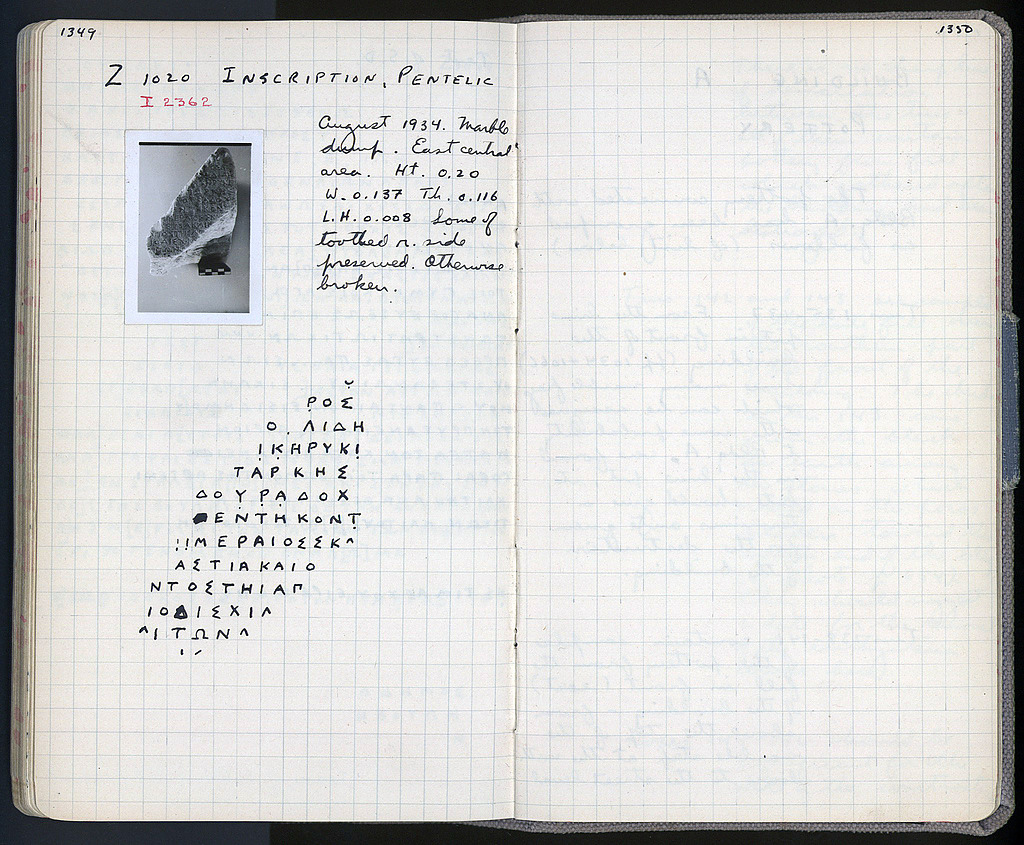 1349
1350
Z 1020 INSCRIPTION, PENTELIC
I 2362
August 1934. Marble
dump. East central
area. Ht. 0.20
W. 0.137 Th. 0.116
L.H. 0.008 Some of
toothed r. side
preserved. Otherwise
broken.
ΡΟΣ
Ο . ΛΙΔΗ
ΙΚΗΡΥΚΙ
ΤΑΡΚΗΣ
ΔΟΥΡΑΔΟΧ
ΕΝΤΗΚΟΝΤ
ΜΕΡΑΙΟΣΣΚ
ΑΣΤΙΑΚΑΙΟ
ΝΤΟΣΤΗΙΑΓ
ΙΟΔΙΣΧΙΛ
ΙΤΩΝ